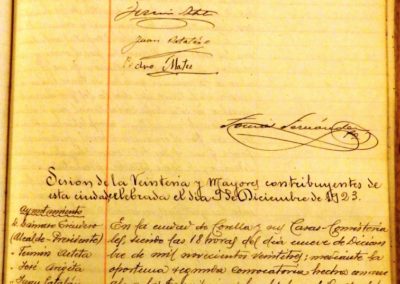 Juan Catalán
Pedro Mateo
Tomás Fernández
Sesion de la Veintena y Mayores contribuyentes de
esta ciudad celebrada el dia 9 de Diciembre de 1923.
Ayuntamiento
D. Dámaso Escudero
(Alcalde-Presidente)
" Fermín Arteta
" José Argeta
En la ciudad de Corella y sus Casas-Consistoria
les, siendo las 18 horas del dia nueve de Diciem
bre de mil novecientos veintitres; mediante la
oportuna segunda convocatoria hecha